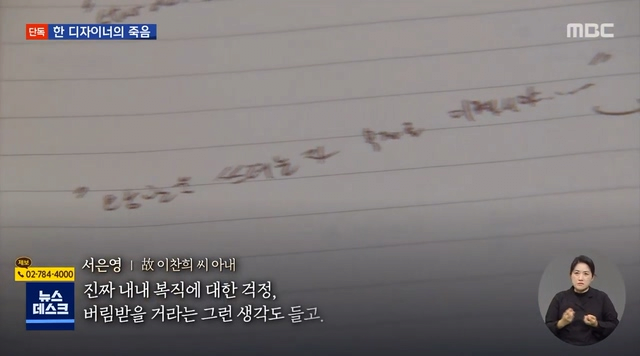 단독 한 디자이너의 죽음
MBC
제보
02-784-4000
뉴스
데스크
서은영 | 故 이찬희 씨 아내
진짜 내내 복직에 대한 걱정,
버림받을 거라는 그런 생각도 들고.